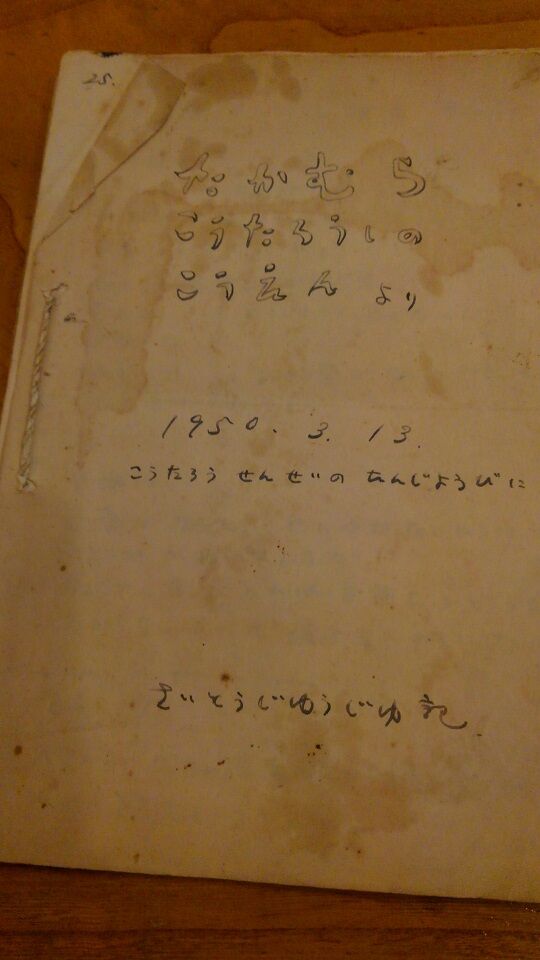 25.
たかむら
こうたろうしの
こうえん より
1950. 3. 13.
こうたろう せんせいの たんじょうびに
さいとうじゅうじゅ記